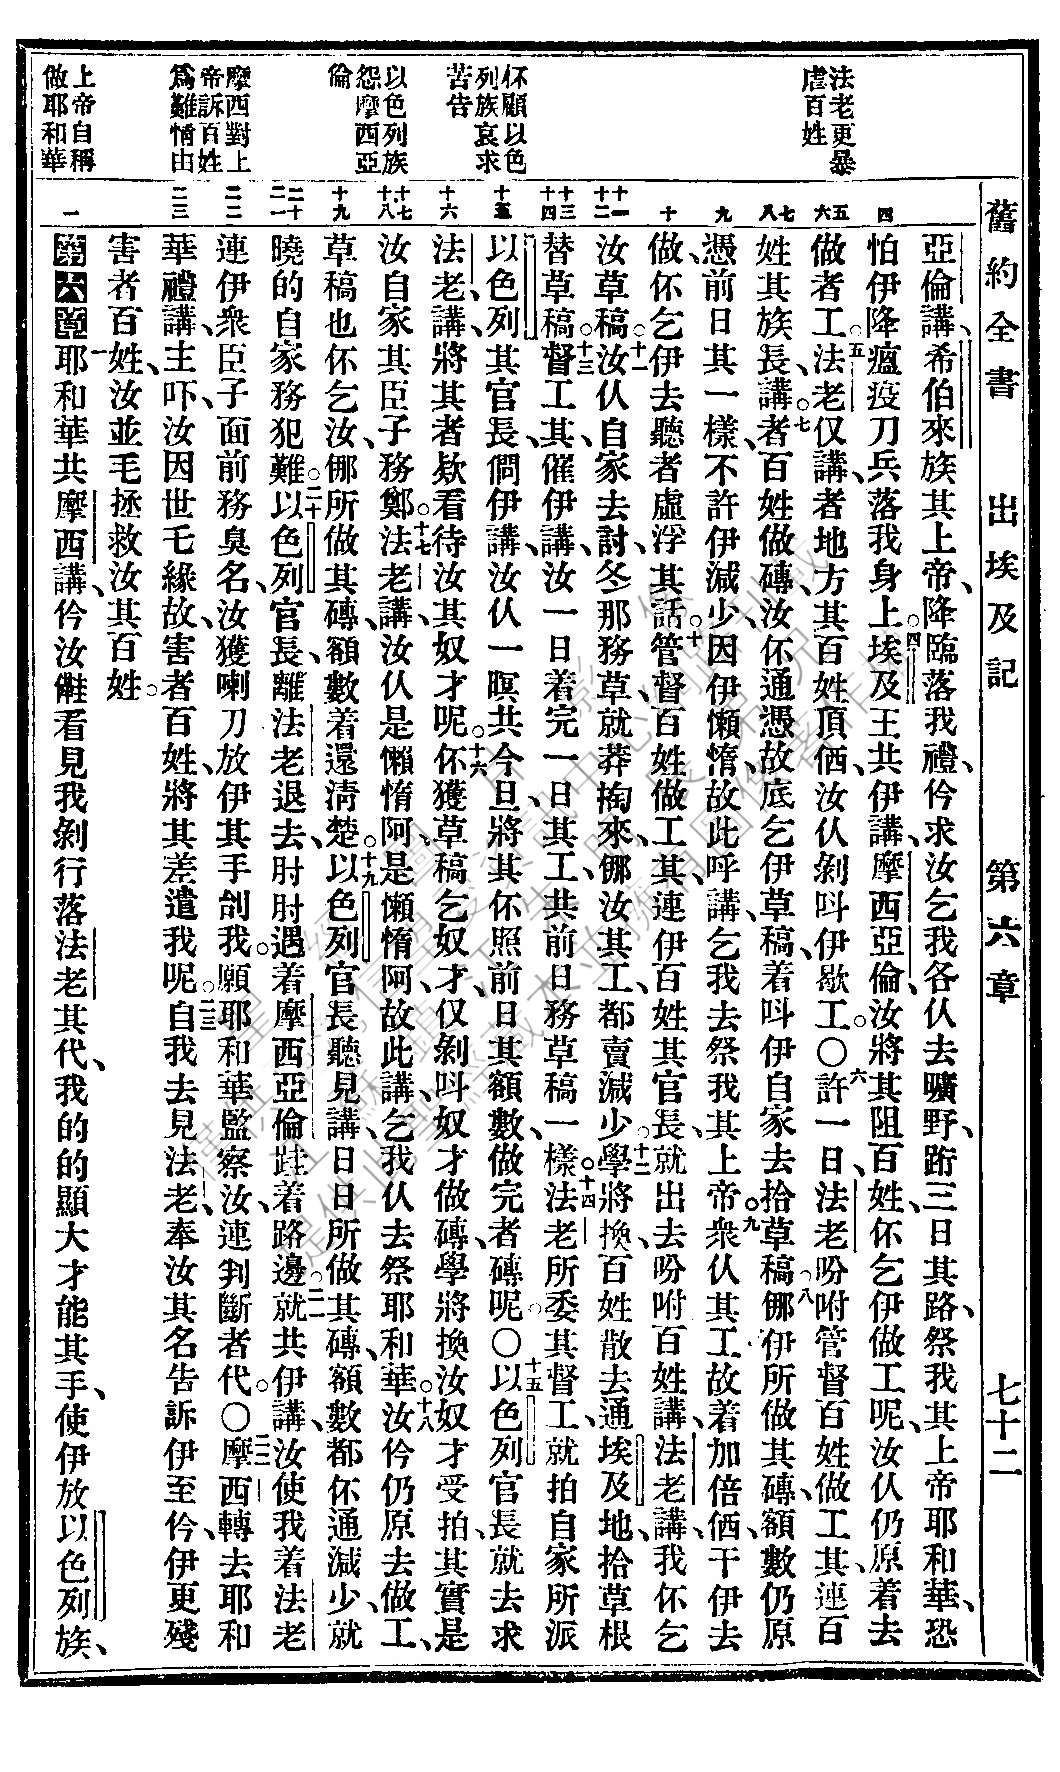 舊約全書 出埃及記 第六章 七十二
法老更暴
虐百姓
伓顧以色
列族哀求
苦告
以色列族
怨摩西亞
倫
摩西對上
帝訴百姓
爲難情由
上帝自稱
做耶和華
亞倫講、希伯來族其上帝、降臨落我禮、仱求汝乞我各仈去曠野、跲三日其路、祭我其上帝耶和華、恐
怕伊降瘟疫刀兵落我身上。四埃及王共伊講、摩西亞倫、汝將其阻百姓、伓乞伊做工呢、汝仈仍原着去
做者工。五法老仅講、者地方其百姓頂価、汝仈剝呌伊歇工。〇六許一日法老吩咐管督百姓做工其、連百
姓其族長、講。七者百姓做磚、汝伓通憑故底乞伊草稿、着呌伊自家去拾草稿。八㑚伊所做其磚、額數仍原
憑前日其一樣、不許伊減少、因伊懶惰、故此呼講、乞我去祭我其上帝。九衆仈其工故着加倍価、干伊去
做、伓乞伊去聽者虛浮其話。十管督百姓做工其、連伊百姓其官長、就出去吩咐百姓講、法老講、我伓乞
汝草稿。十一汝仈自家去討、冬那務草就莽掏來、㑚汝其工、都賣減少。十二學將換、百姓散去通埃及地、拾草根
替草稿。十三督工其、催伊講、汝一日着完一日其工、共前日務草稿一樣。十四法老所委其督工、就拍自家所派
以色列其官長、僩伊講、汝仈一暝共今旦、將其伓照前日其額數、做完者磚呢。〇十五以色列官長就去求
法老、講、將其者欵看待汝其奴才呢。十六伓獲草稿乞奴才、仅剝呌奴才做磚、學將換汝奴才受拍、其實是
汝自家其臣子務鄭。十七法老講、汝仈是懶惰阿、是懶惰阿、故此講、乞我仈去祭耶和華。十八汝仱仍原去做工、
草稿也伓乞汝、㑚所做其磚、額數着還淸楚。十九以色列官長聽見講、日日所做其磚、額數都伓通減少、就
曉的自家務犯難。二十以色列官長、離法老退去、肘肘遇着摩西亞倫跬着路邊。二一就共伊講、汝使我着法老
連伊衆臣子面前務臭名、汝獲喇刀放伊其手刣我。願耶和華監察汝、連判斷者代。〇二二摩西轉去耶和
華禮講、主吓、汝因世乇緣故、害者百姓、將其差遣我呢。二三自我去見法老、奉汝其名告訴伊至仱、伊更殘
害者百姓、汝並毛拯救汝其百姓。
第六章 一耶和華共摩西講、仱汝𠆧看見我剝行落法老其代、我的的顯大才能其手、使伊放以色列族、